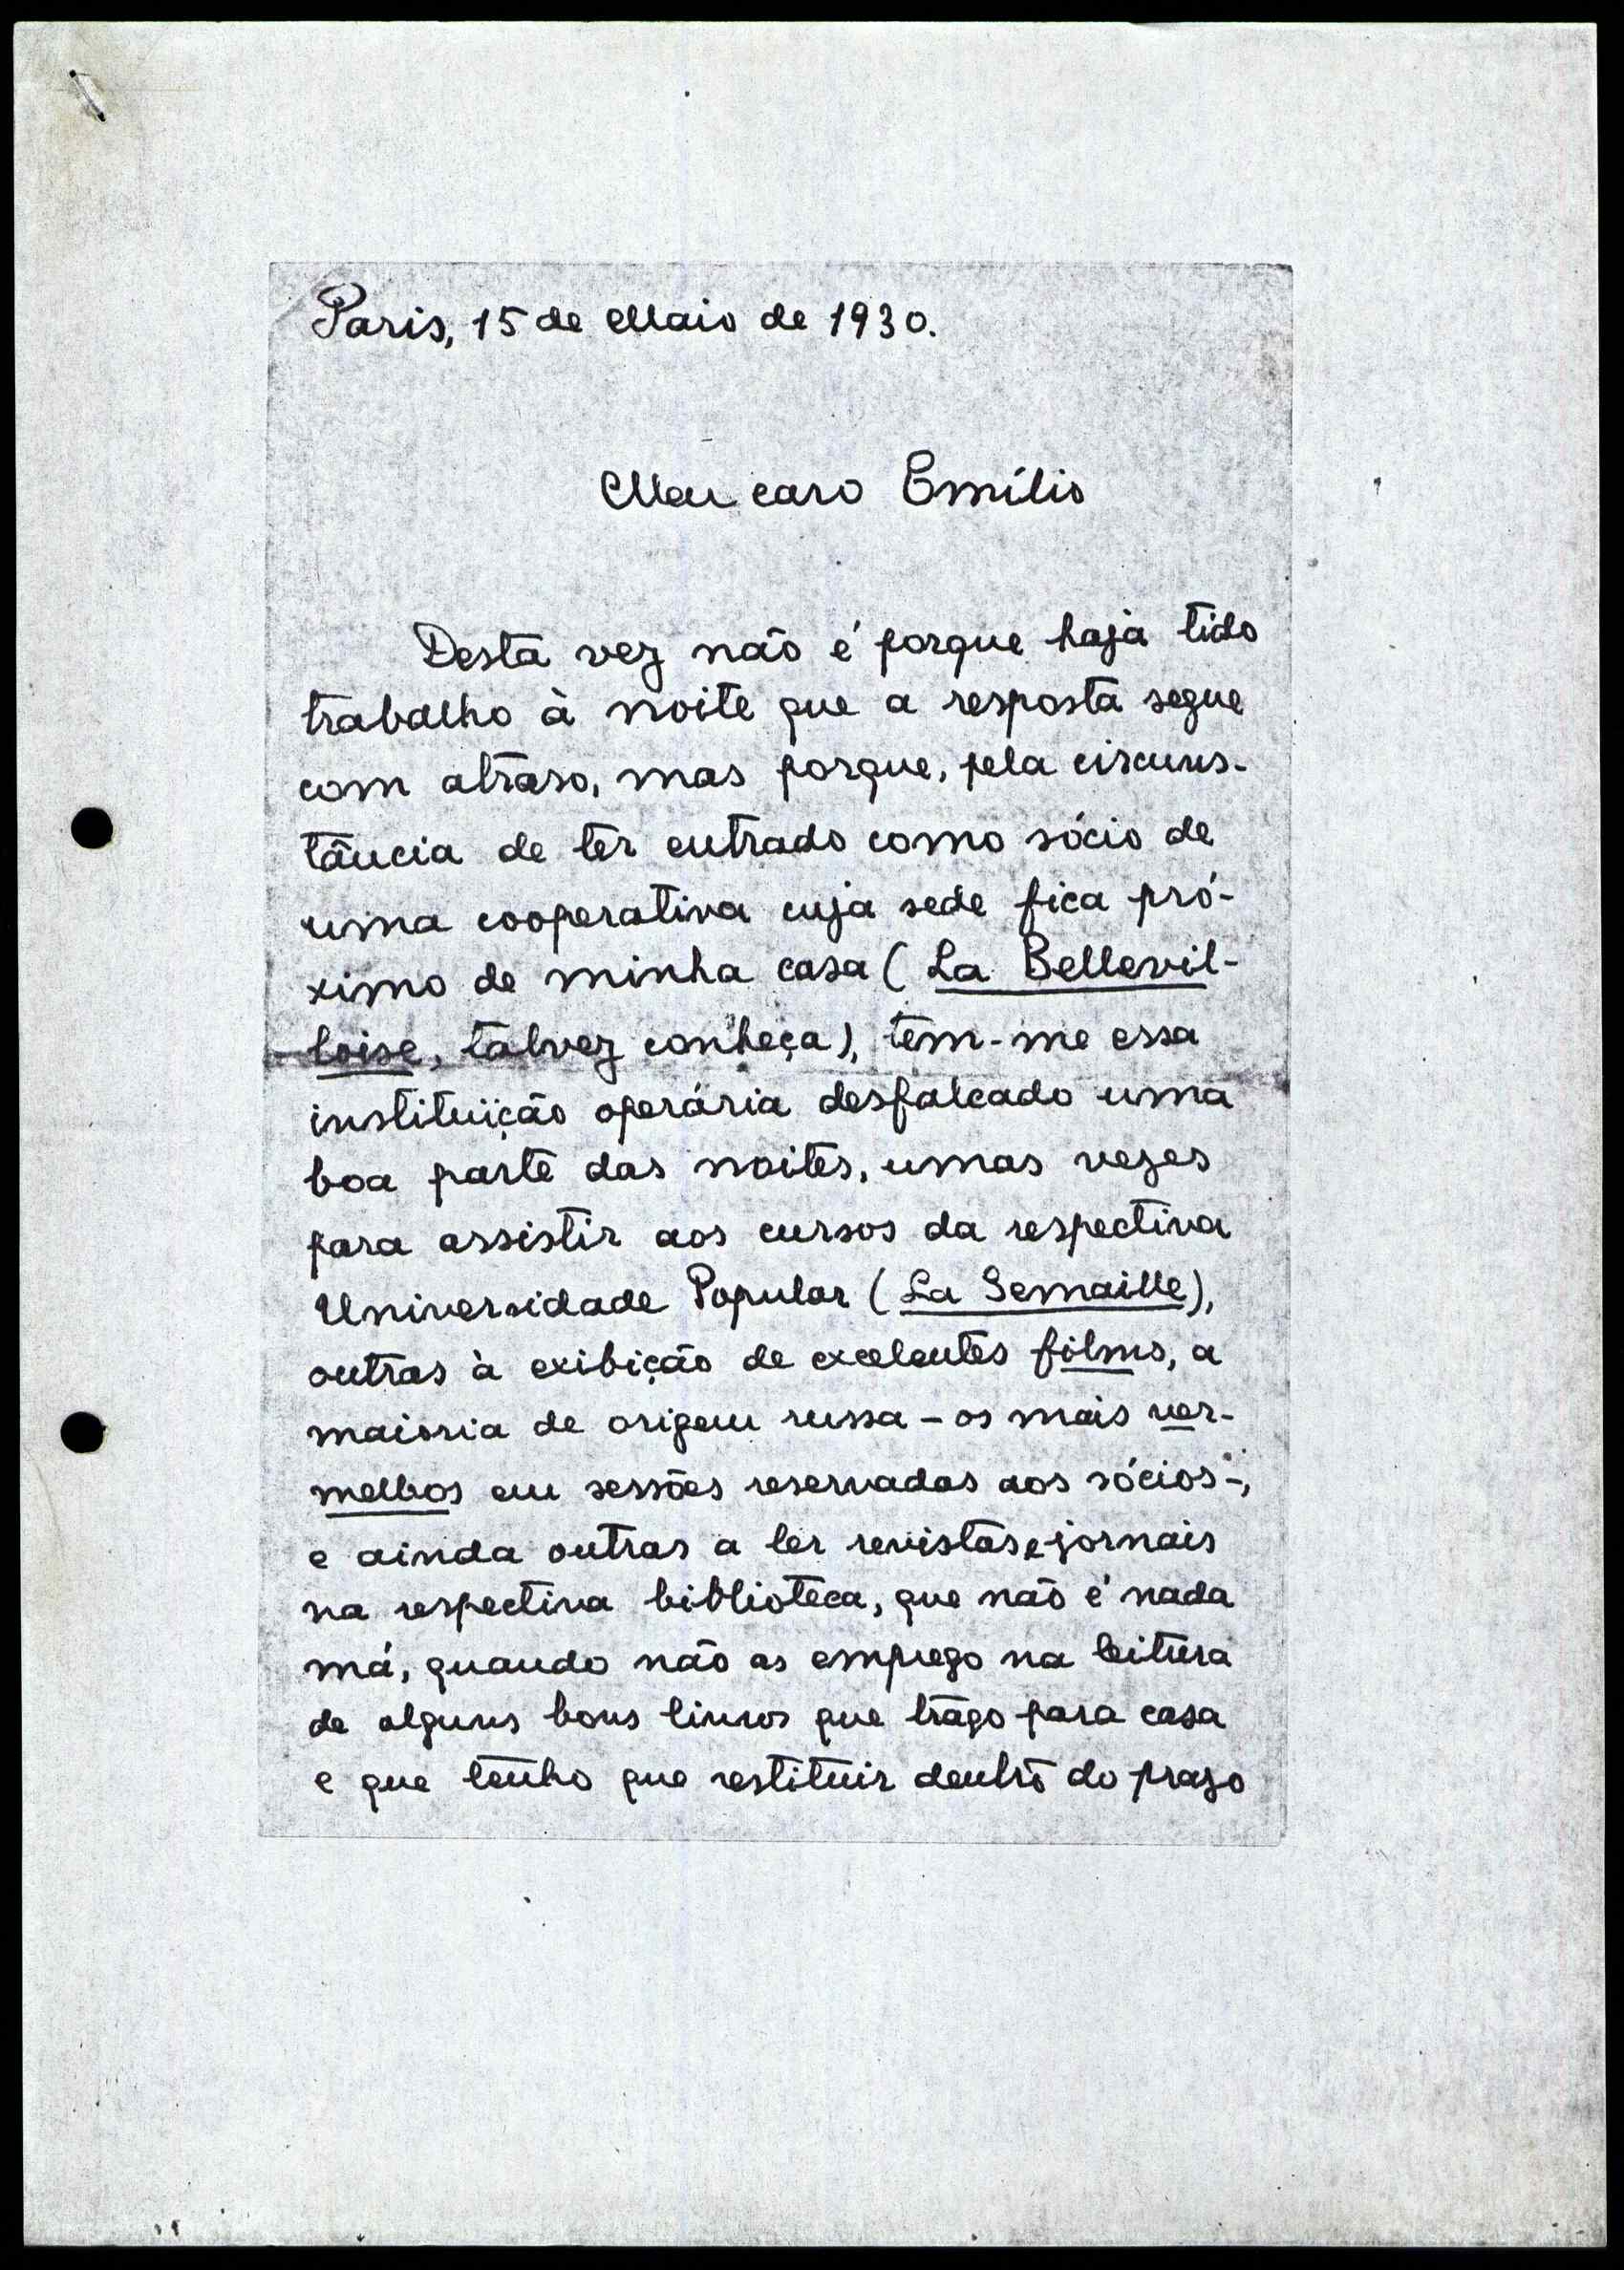 Paris, 15 de Maio de 1930.
Meu caro Emílio
Desta vez não é porque haja tido
trabalho à noite que a resposta segue
com atraso, mas porque, pela circuns-
tância de ter entrado como sócio de
uma cooperativa cuja sede fica pró-
ximo de minha casa (La Bellevil-
loise, talvez conheça), tem-me essa
instituïção operária desfalcado uma
boa parte das noites, umas vezes
para assistir aos cursos da respectiva
Universidade Popular (La Semaille),
outras à exibição de excelentes films, a
maioria de origem russa - os mais ver-
melhos em sessões reservadas aos sócios -;
e ainda outras a ler revistas e jornais
na respectiva biblioteca, que não é nada
má, quando não as emprego na leitura
de alguns bons livros que trago para casa
e que tenho que restituir dentro do prazo